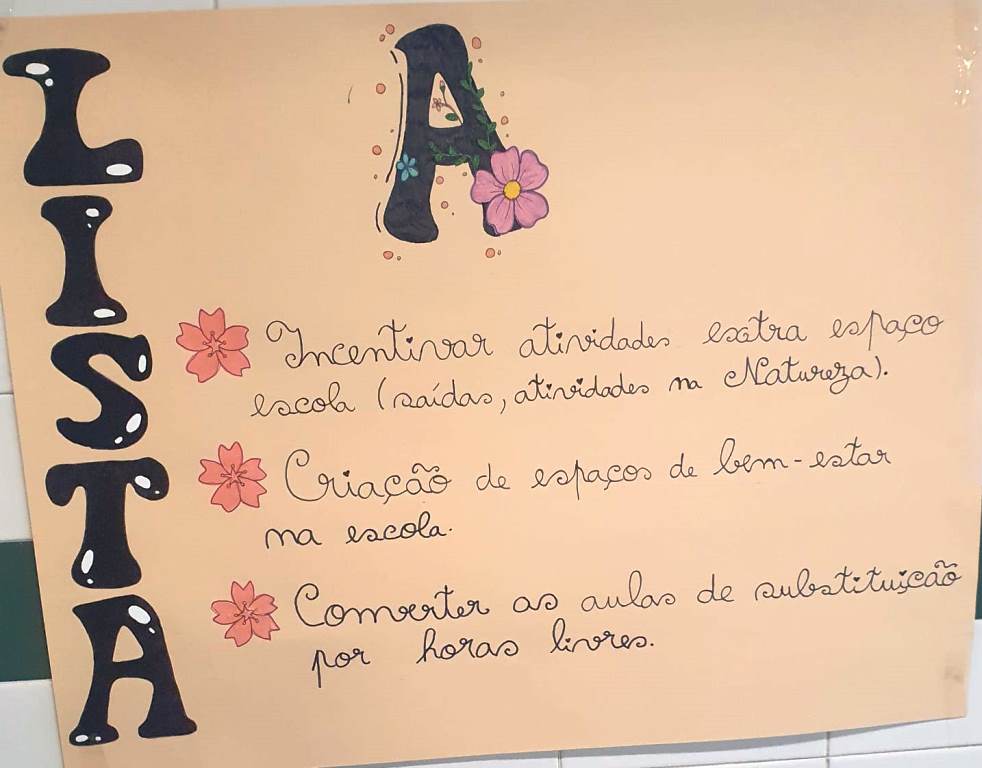 LISTA
A
Incentivar atividades extra espaço
escola (saídas, atividades na Natureza).
Criação de espaços de bem-estar
na escola.
Converter as aulas de substituição
por horas livres.